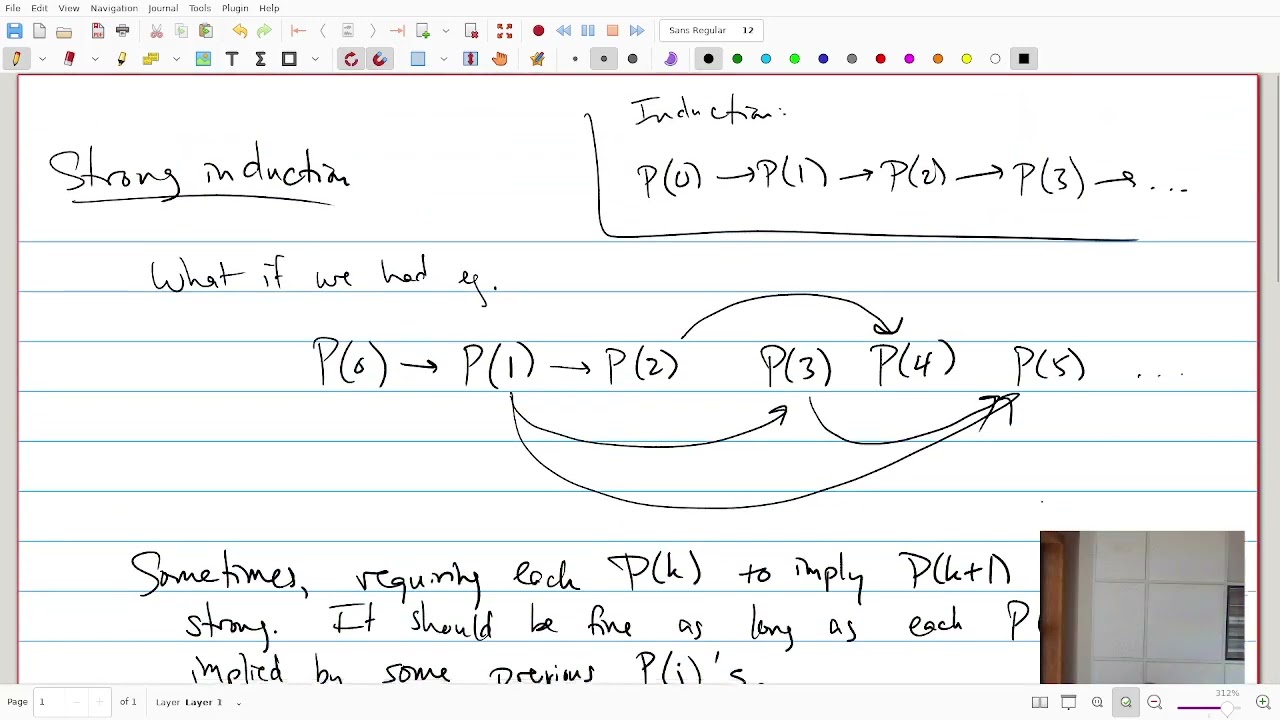 File Edit View Navigation Journal Tools Plugin Help
Sans Regular 12
Induction:
Strong induction
P(0) → P(1) → P(2) → P(3) → ...
What if we had eg.
P(0) → P(1) → P(2) P(3) P(4) P(5) ...
Sometimes, requiring each P(k) to imply P(k+1)
strong. It should be fine as long as each P
implied by some previous P(i)'s.
Page 1 of 1 Layer Layer 1 312%